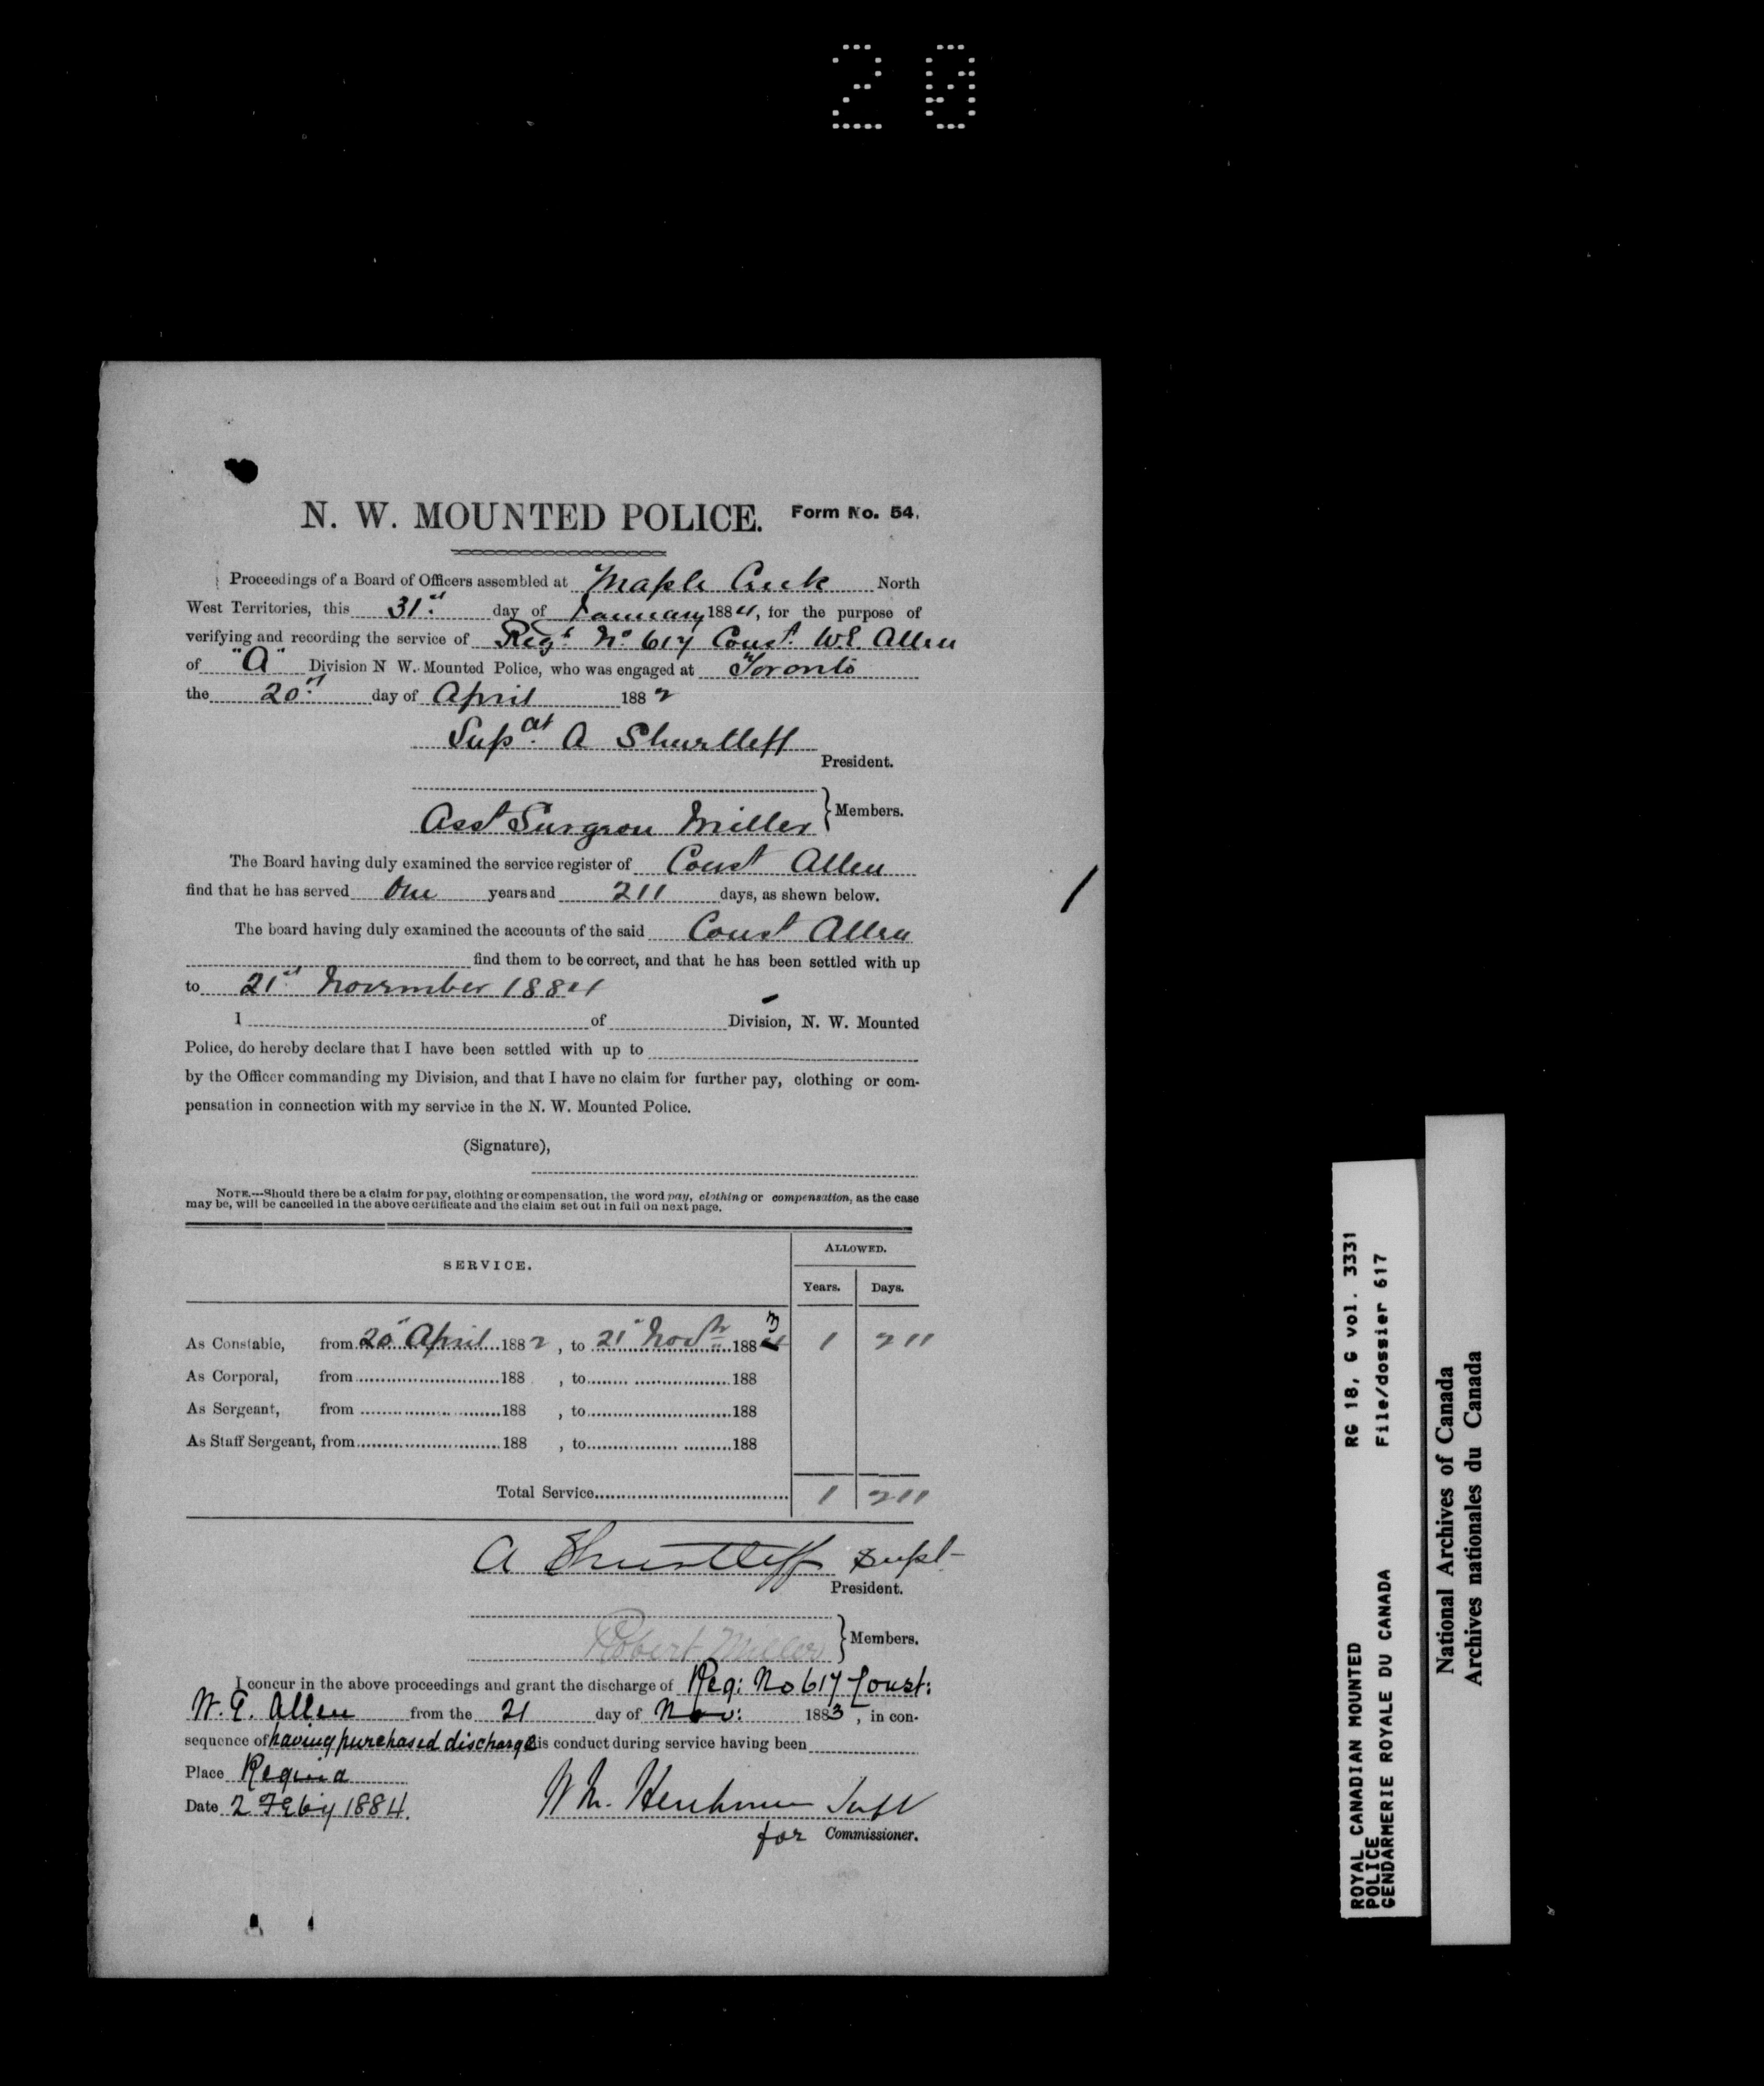 20
N. W. MOUNTED POLICE. Form No. 54.
Proceedings of a Board of Officers assembled at Maple Creek North
West Territories, this 31st day of January 1884, for the purpose of
verifying and recording the service of Regt No 617 Const. W.E. Allen
of "A" Division N W. Mounted Police, who was engaged at Toronto
the 20st day of April 1882
Supat A Shurtleff
President.
Asst Surgeon Miller } Members.
The Board having duly examined the service register of Const Allen
find that he has served One years and 211 days, as shewn below.
The board having duly examined the accounts of the said Const Allen
find them to be correct, and that he has been settled with up
to 21st November 1884
I of Division, N. W. Mounted
Police, do hereby declare that I have been settled with up to
by the Officer commanding my Division, and that I have no claim for further pay, clothing or com-
pensation in connection with my service in the N. W. Mounted Police.
(Signature),
NOTE.—Should there be a claim for pay, clothing or compensation, the word pay, clothing or compensation, as the case
may be, will be cancelled in the above certificate and the claim set out in full on next page.
SERVICE. ALLOWED.
Years. Days.
As Constable, from 20" April 1882, to 21" Novbr 1884 3 1 211
As Corporal, from 188 , to 188
As Sergeant, from 188 , to 188
As Staff Sergeant, from 188 , to 188
Total Service 1 211
A Shurtleff Supt
President.
Robert Miller } Members.
I concur in the above proceedings and grant the discharge of Reg: No 617 Const:
W. E. Allen from the 21 day of Nov: 1883, in con-
sequence of having purchased discharge his conduct during service having been
Place Regina
Date 2 Feby 1884. Wm. Herchmer Supt
for Commissioner.
ROYAL CANADIAN MOUNTED RG 18, G vol. 3331
POLICE
GENDARMERIE ROYALE DU CANADA File/dossier 617
National Archives of Canada
Archives nationales du Canada